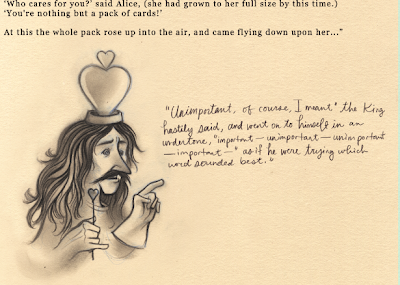 ‘Who cares for you?’ said Alice, (she had grown to her full size by this time.)
‘You’re nothing but a pack of cards!’
At this the whole pack rose up into the air, and came flying down upon her...”
"Unimportant, of course, I meant" the King
hastily said, and went on to himself in an
undertone, "important — unimportant — unimportant
— important —" as if he were trying which
word sounded best."